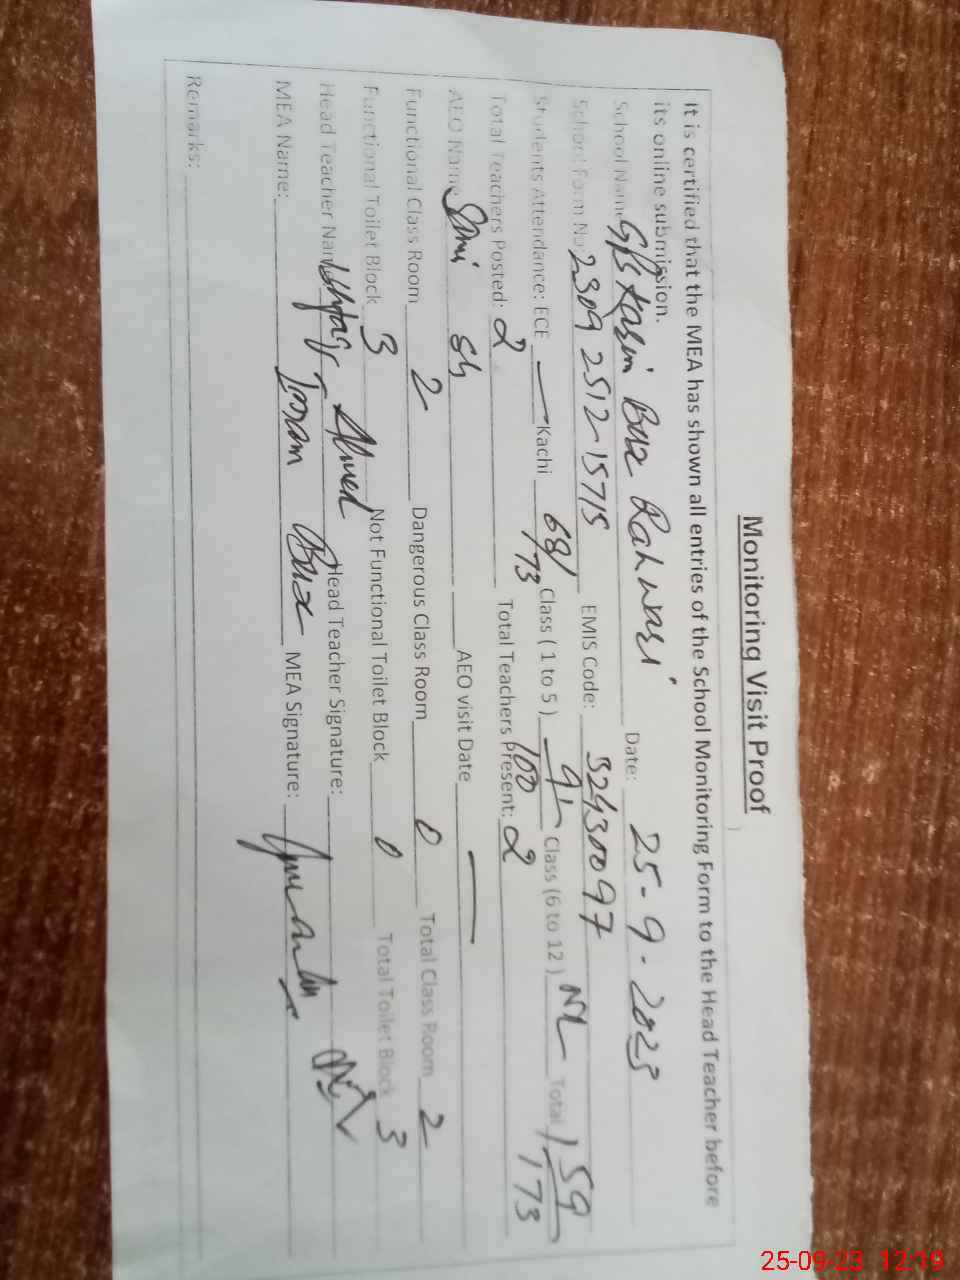 Monitoring Visit Proof
It is certified that the MEA has shown all entries of the School Monitoring Form to the Head Teacher before
its online submission.
School Name GBPS Karim Bux Rahwari Date: 25-9-2023
School Form No: 2309 2512-15715 EMIS Code: 32430097
Students Attendance: ECE — Kachi 68/73 Class ( 1 to 5 ) 91/100 Class (6 to 12 ) NIL Total 159/173
Total Teachers Posted: 2 Total Teachers Present: 2
AEO Name Sami AEO visit Date —
Functional Class Room 2 Dangerous Class Room 0 Total Class Room 2
Functional Toilet Block 3 Not Functional Toilet Block 0 Total Toilet Block 3
Head Teacher Name Ishfaq Ahmed Head Teacher Signature:
MEA Name: Imam Bux MEA Signature:
Remarks:
25-09-23 12:19